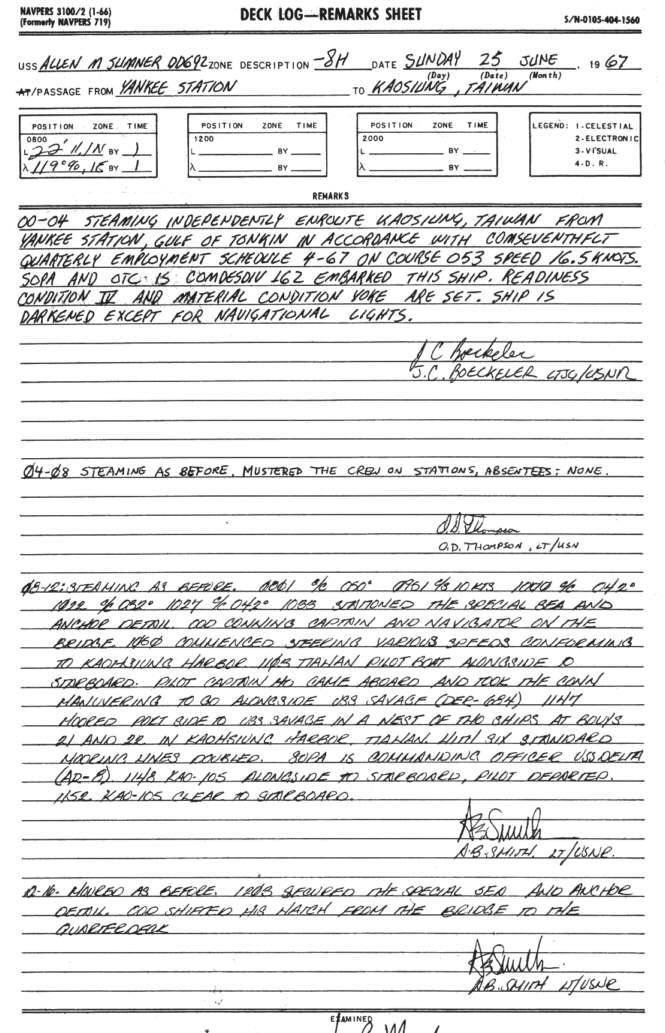 NAVPERS 3100/2 (1-66)
(Formerly NAVPERS 719)
DECK LOG—REMARKS SHEET
S/N-0105-404-1560
USS ALLEN M SUMNER DD692 ZONE DESCRIPTION -8H DATE SUNDAY 25 JUNE, 19 67
(Day) (Date) (Month)
AT/PASSAGE FROM YANKEE STATION TO KAOSIUNG, TAIWAN
POSITION ZONE TIME
0800
L 22° 11.1N BY 1
λ 119° BY 1
POSITION ZONE TIME
1200
L BY
λ BY
POSITION ZONE TIME
2000
L BY
λ BY
LEGEND: 1-CELESTIAL
2-ELECTRONIC
3-VISUAL
4-D. R.
REMARKS
00-04 STEAMING INDEPENDENTLY ENROUTE KAOSIUNG, TAIWAN FROM
YANKEE STATION, GULF OF TONKIN IN ACCORDANCE WITH COMSEVENTHFLT
QUARTERLY EMPLOYMENT SCHEDULE 4-67 ON COURSE 053 SPEED 16.5 KNOTS.
SOPA AND OTC IS COMDESDIV 162 EMBARKED THIS SHIP. READINESS
CONDITION IV AND MATERIAL CONDITION YOKE ARE SET. SHIP IS
DARKENED EXCEPT FOR NAVIGATIONAL LIGHTS.
J C Boeckeler
J.C. BOECKELER LTJG/USNR
04-08 STEAMING AS BEFORE. MUSTERED THE CREW ON STATIONS, ABSENTEES: NONE.
O.D. Thompson
O.D. THOMPSON, LT/USN
08-12: STEAMING AS BEFORE. 0801 c/c 050° 0951 c/s 10 KTS 1000 c/c 042°
1022 c/c 032° 1027 c/c 042° 1033 STATIONED THE SPECIAL SEA AND
ANCHOR DETAIL. OOD CONNING CAPTAIN AND NAVIGATOR ON THE
BRIDGE. 1050 COMMENCED STEERING VARIOUS SPEEDS CONFORMING
TO KAOHSIUNG HARBOR 1103 TIAWAN PILOT BOAT ALONGSIDE TO
STARBOARD. PILOT CAPTAIN HO CAME ABOARD AND TOOK THE CONN
MANUVERING TO GO ALONGSIDE USS SAVAGE (DER-684) 1147
MOORED PORT SIDE TO USS SAVAGE IN A NEST OF TWO SHIPS AT BOUYS
21 AND 22 IN KAOHSIUNG HARBOR, TIAWAN WITH SIX STANDARD
MOORING LINES DOUBLED. SOPA IS COMMANDING OFFICER USS DELTA
(AR-9). 1148 KAO-105 ALONGSIDE TO STARBOARD, PILOT DEPARTED.
1152 KAO-105 CLEAR TO STARBOARD.
AB Smith
A.B. SMITH, LT/USNR.
12-16- MOORED AS BEFORE. 1203 SECURED THE SPECIAL SEA AND ANCHOR
DETAIL. OOD SHIFTED HIS WATCH FROM THE BRIDGE TO THE
QUARTERDECK
AB Smith
A.B. SMITH LT/USNR
EXAMINED